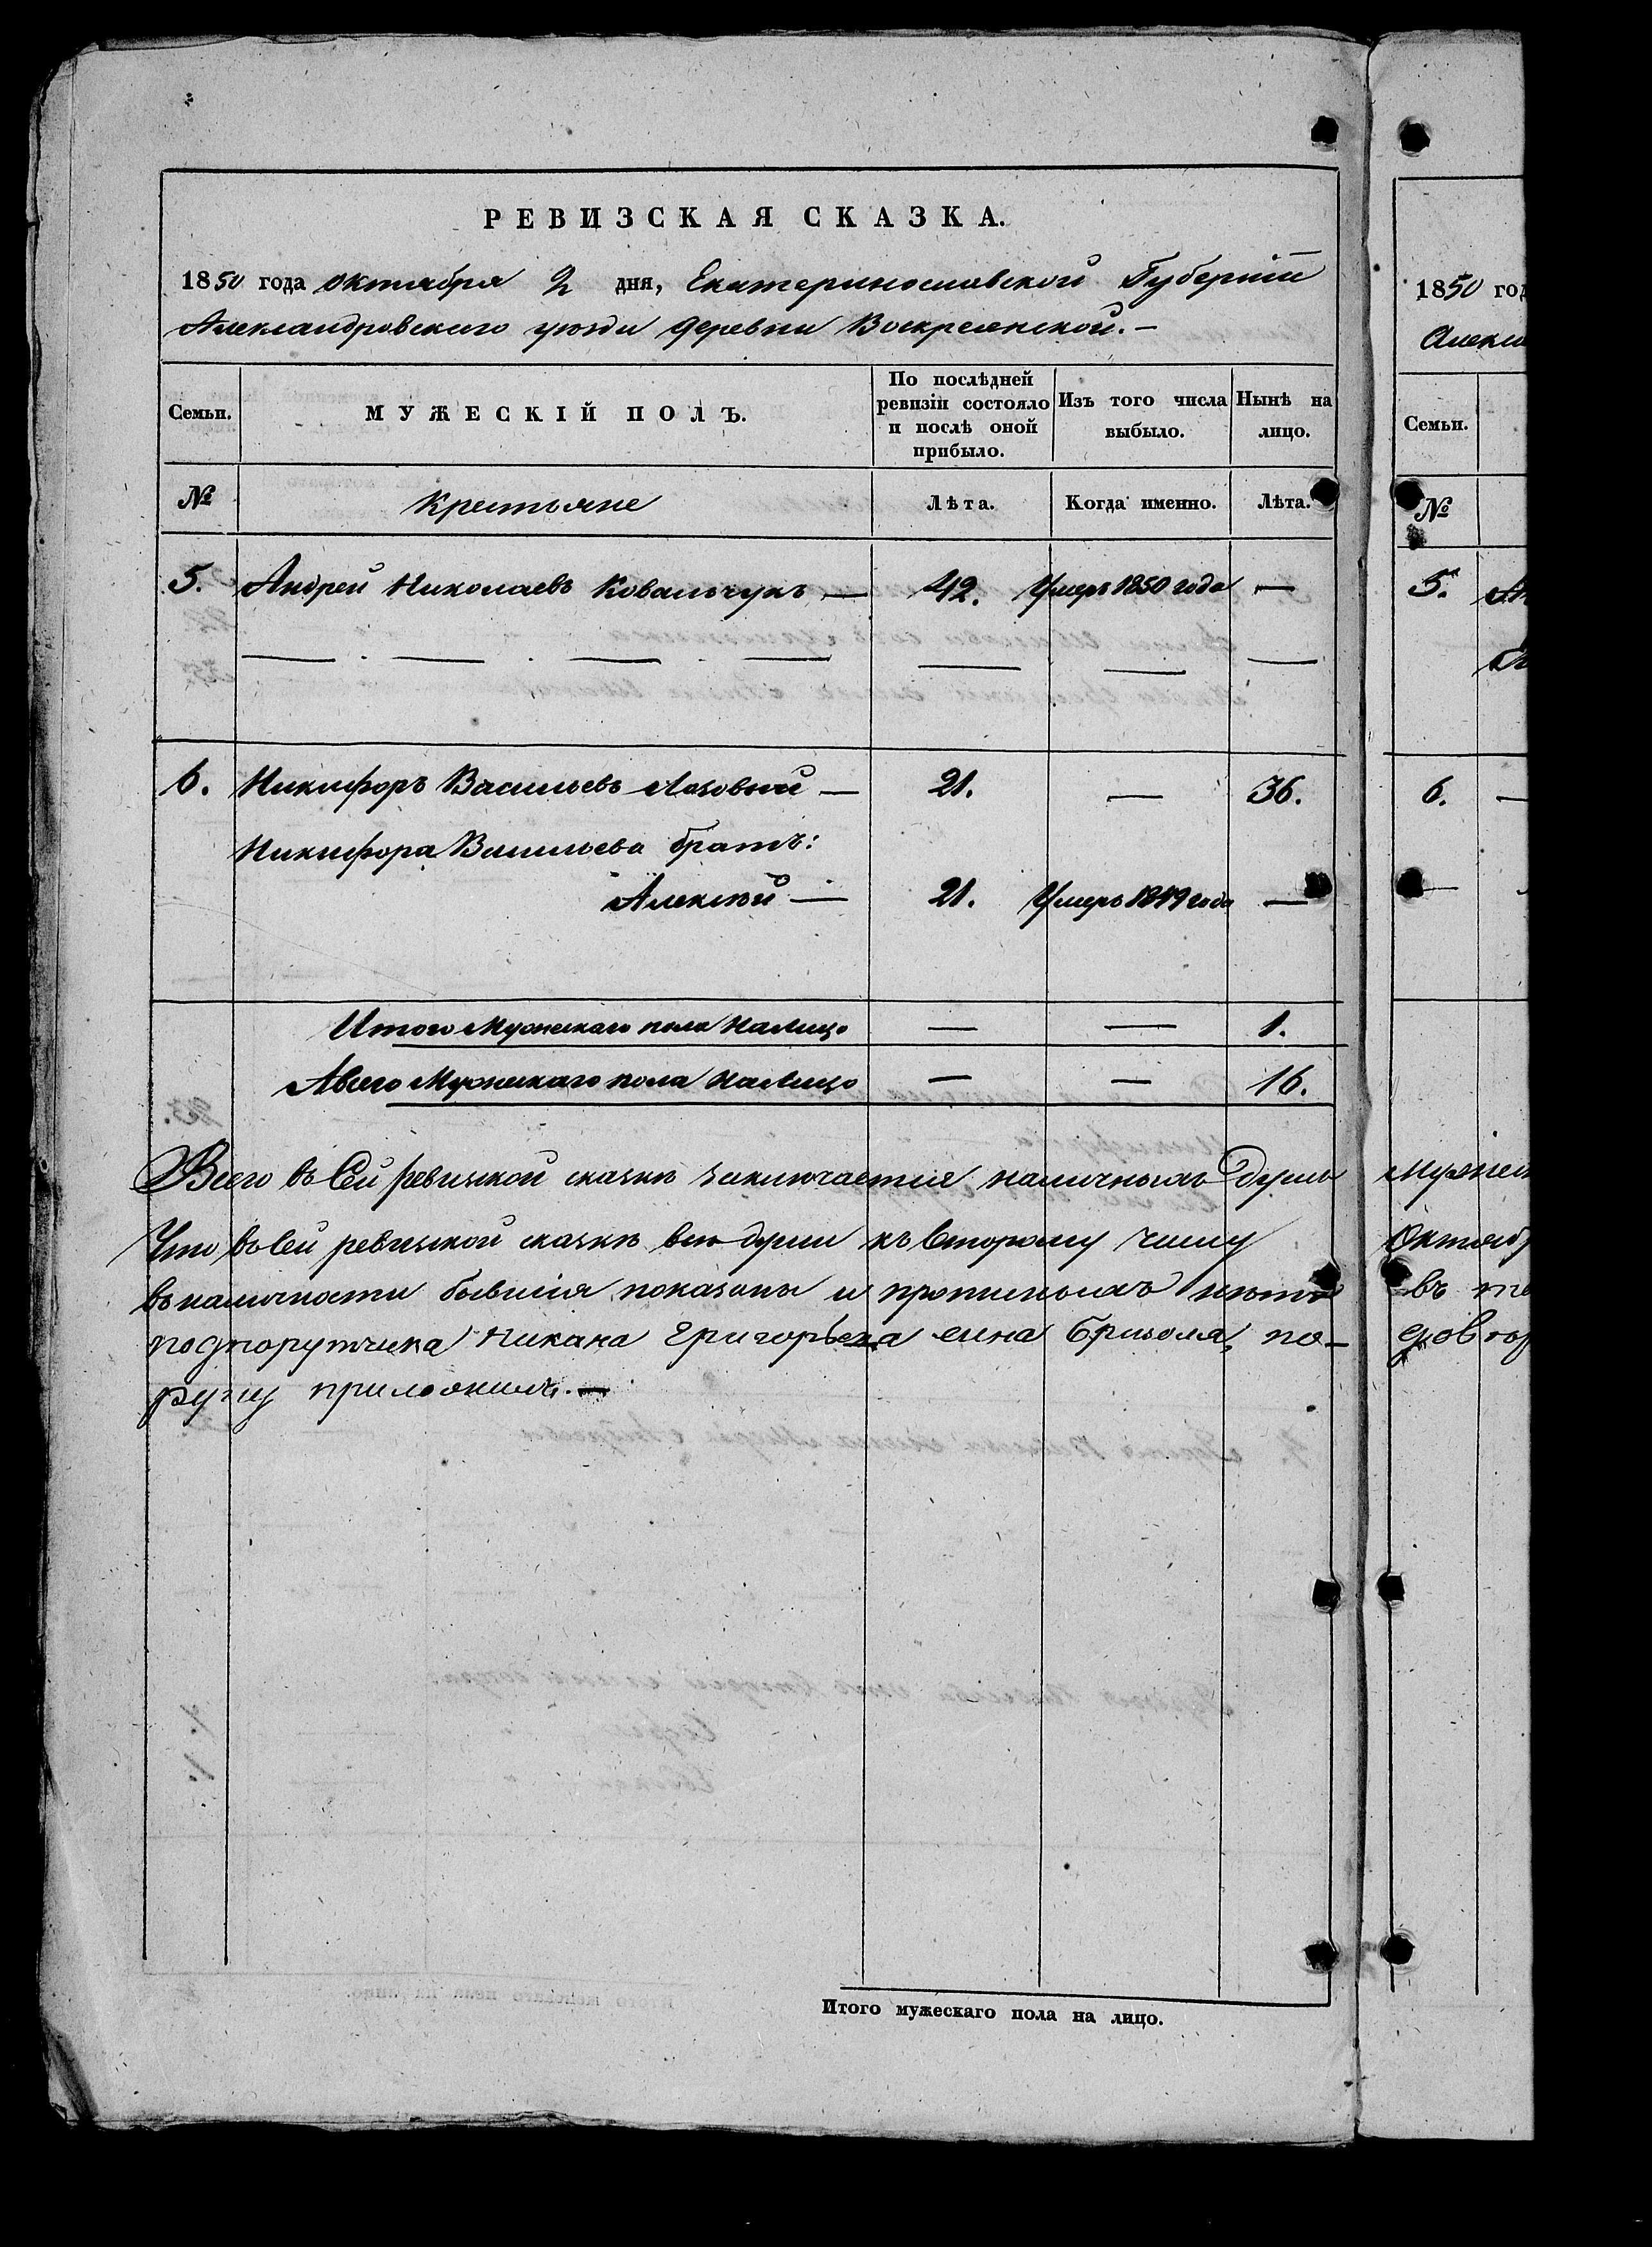 РЕВИЗСКАЯ СКАЗКА.
1850 года октября 2 дня, Екатеринославской Губерніи
Александровскаго уѣзда деревни Воскресенской.—
Семьи.
МУЖЕСКІЙ ПОЛЪ.
По послѣдней ревизіи состояло и послѣ оной прибыло.
Изъ того числа выбыло.
Нынѣ на лицо.
№ Крестьяне Лѣта. Когда именно. Лѣта.
5. Андрей Николаевъ Ковальчукъ — 42. Умеръ 1850 года —
6. Никифоръ Васильевъ Лозовый — 21. — 36.
Никифора Васильева братъ:
Алексѣй — 21. Умеръ 1849 года —
Итого Мужескаго пола На Лицо — — 1.
А всего Мужескаго пола На Лицо — — 16.
Всего въ Сей ревизской сказкѣ заключается наличныхъ душъ
Что въ Сей ревизской сказкѣ всѣ души къ второму числу
въ наличности бывшія показаны и прописныхъ нѣтъ
подпорутчика Никана Григорьева сина Бризоля, по-
руку приложилъ.—
Итого мужескаго пола на лицо.
1850 год
Алекса
Семьи.
№
5.
6. —
Мужеск
Октябр
въ